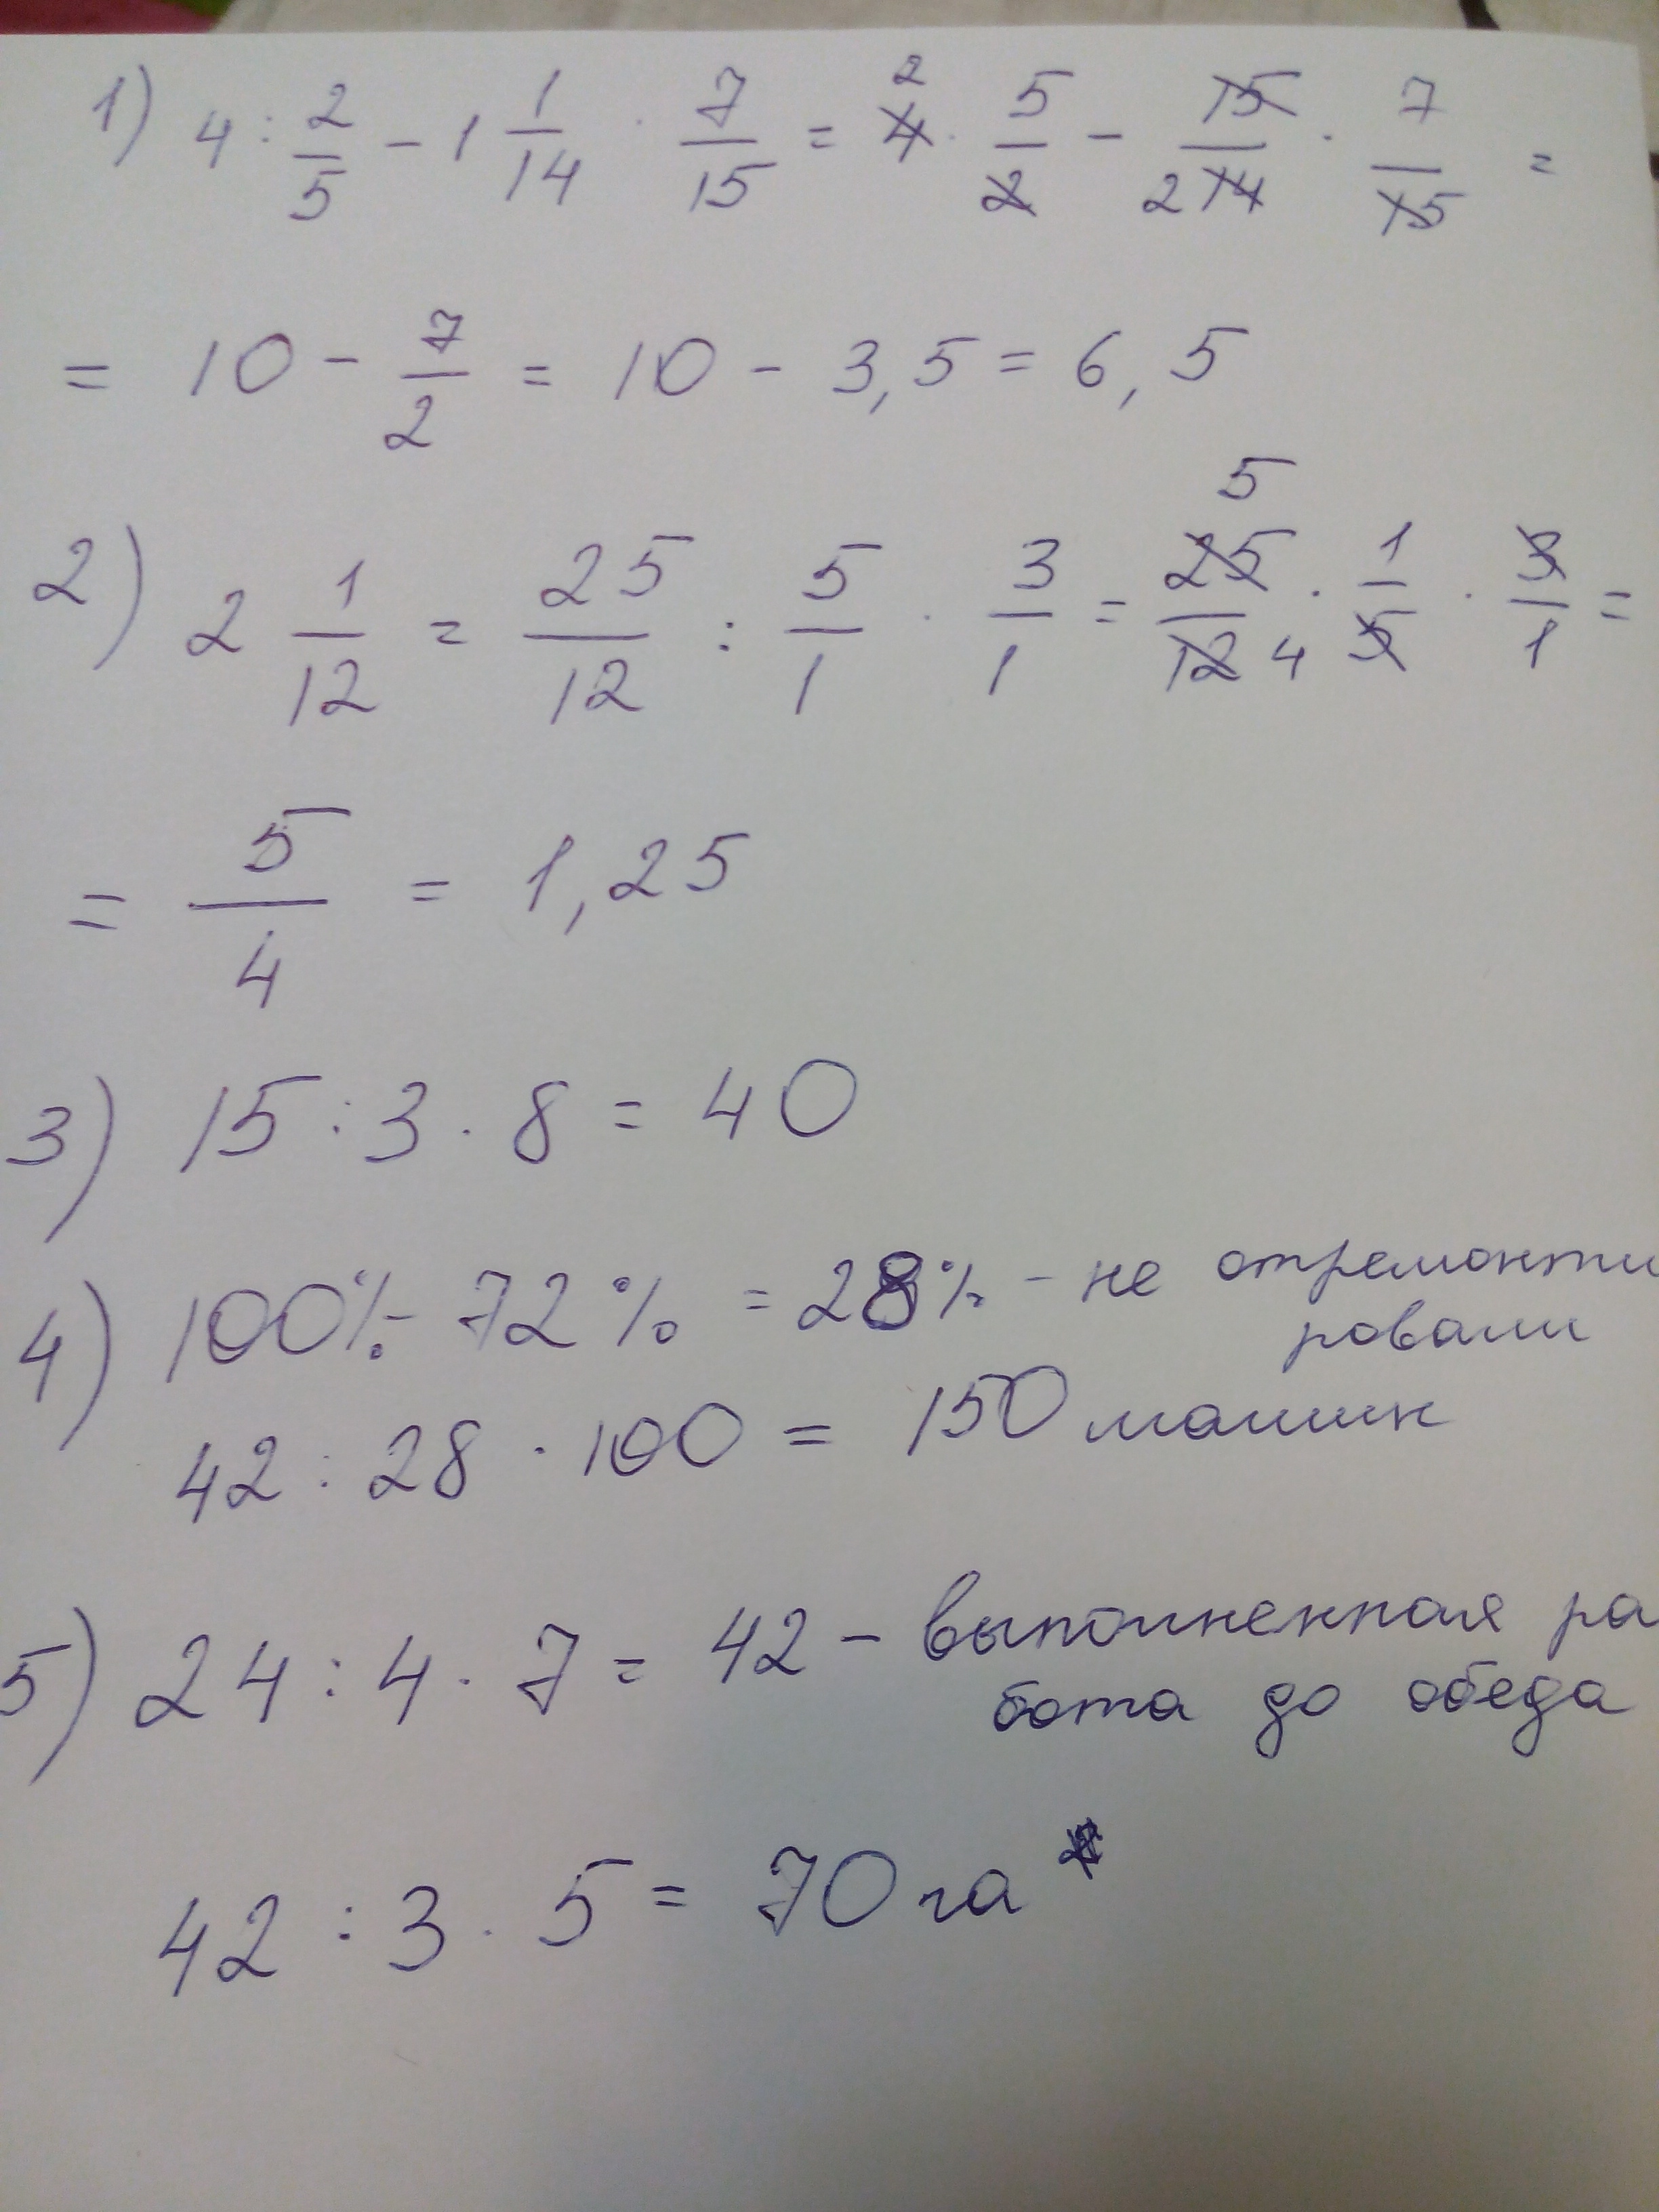 1) 4 : 2/5 - 1 1/14 · 7/15 = 4 2 · 5/2 - 15/2 14 · 7/15 =
= 10 - 7/2 = 10 - 3,5 = 6,5
2) 2 1/12 = 25/12 : 5/1 · 3/1 = 5 25/12 4 · 1/5 · 3/1 =
= 5/4 = 1,25
3) 15 : 3 · 8 = 40
4) 100% - 72% = 28% - не отремонти
ровали
42 : 28 · 100 = 150 машин
5) 24 : 4 · 7 = 42 - выполненная ра
бота до обеда
42 : 3 · 5 = 70 га